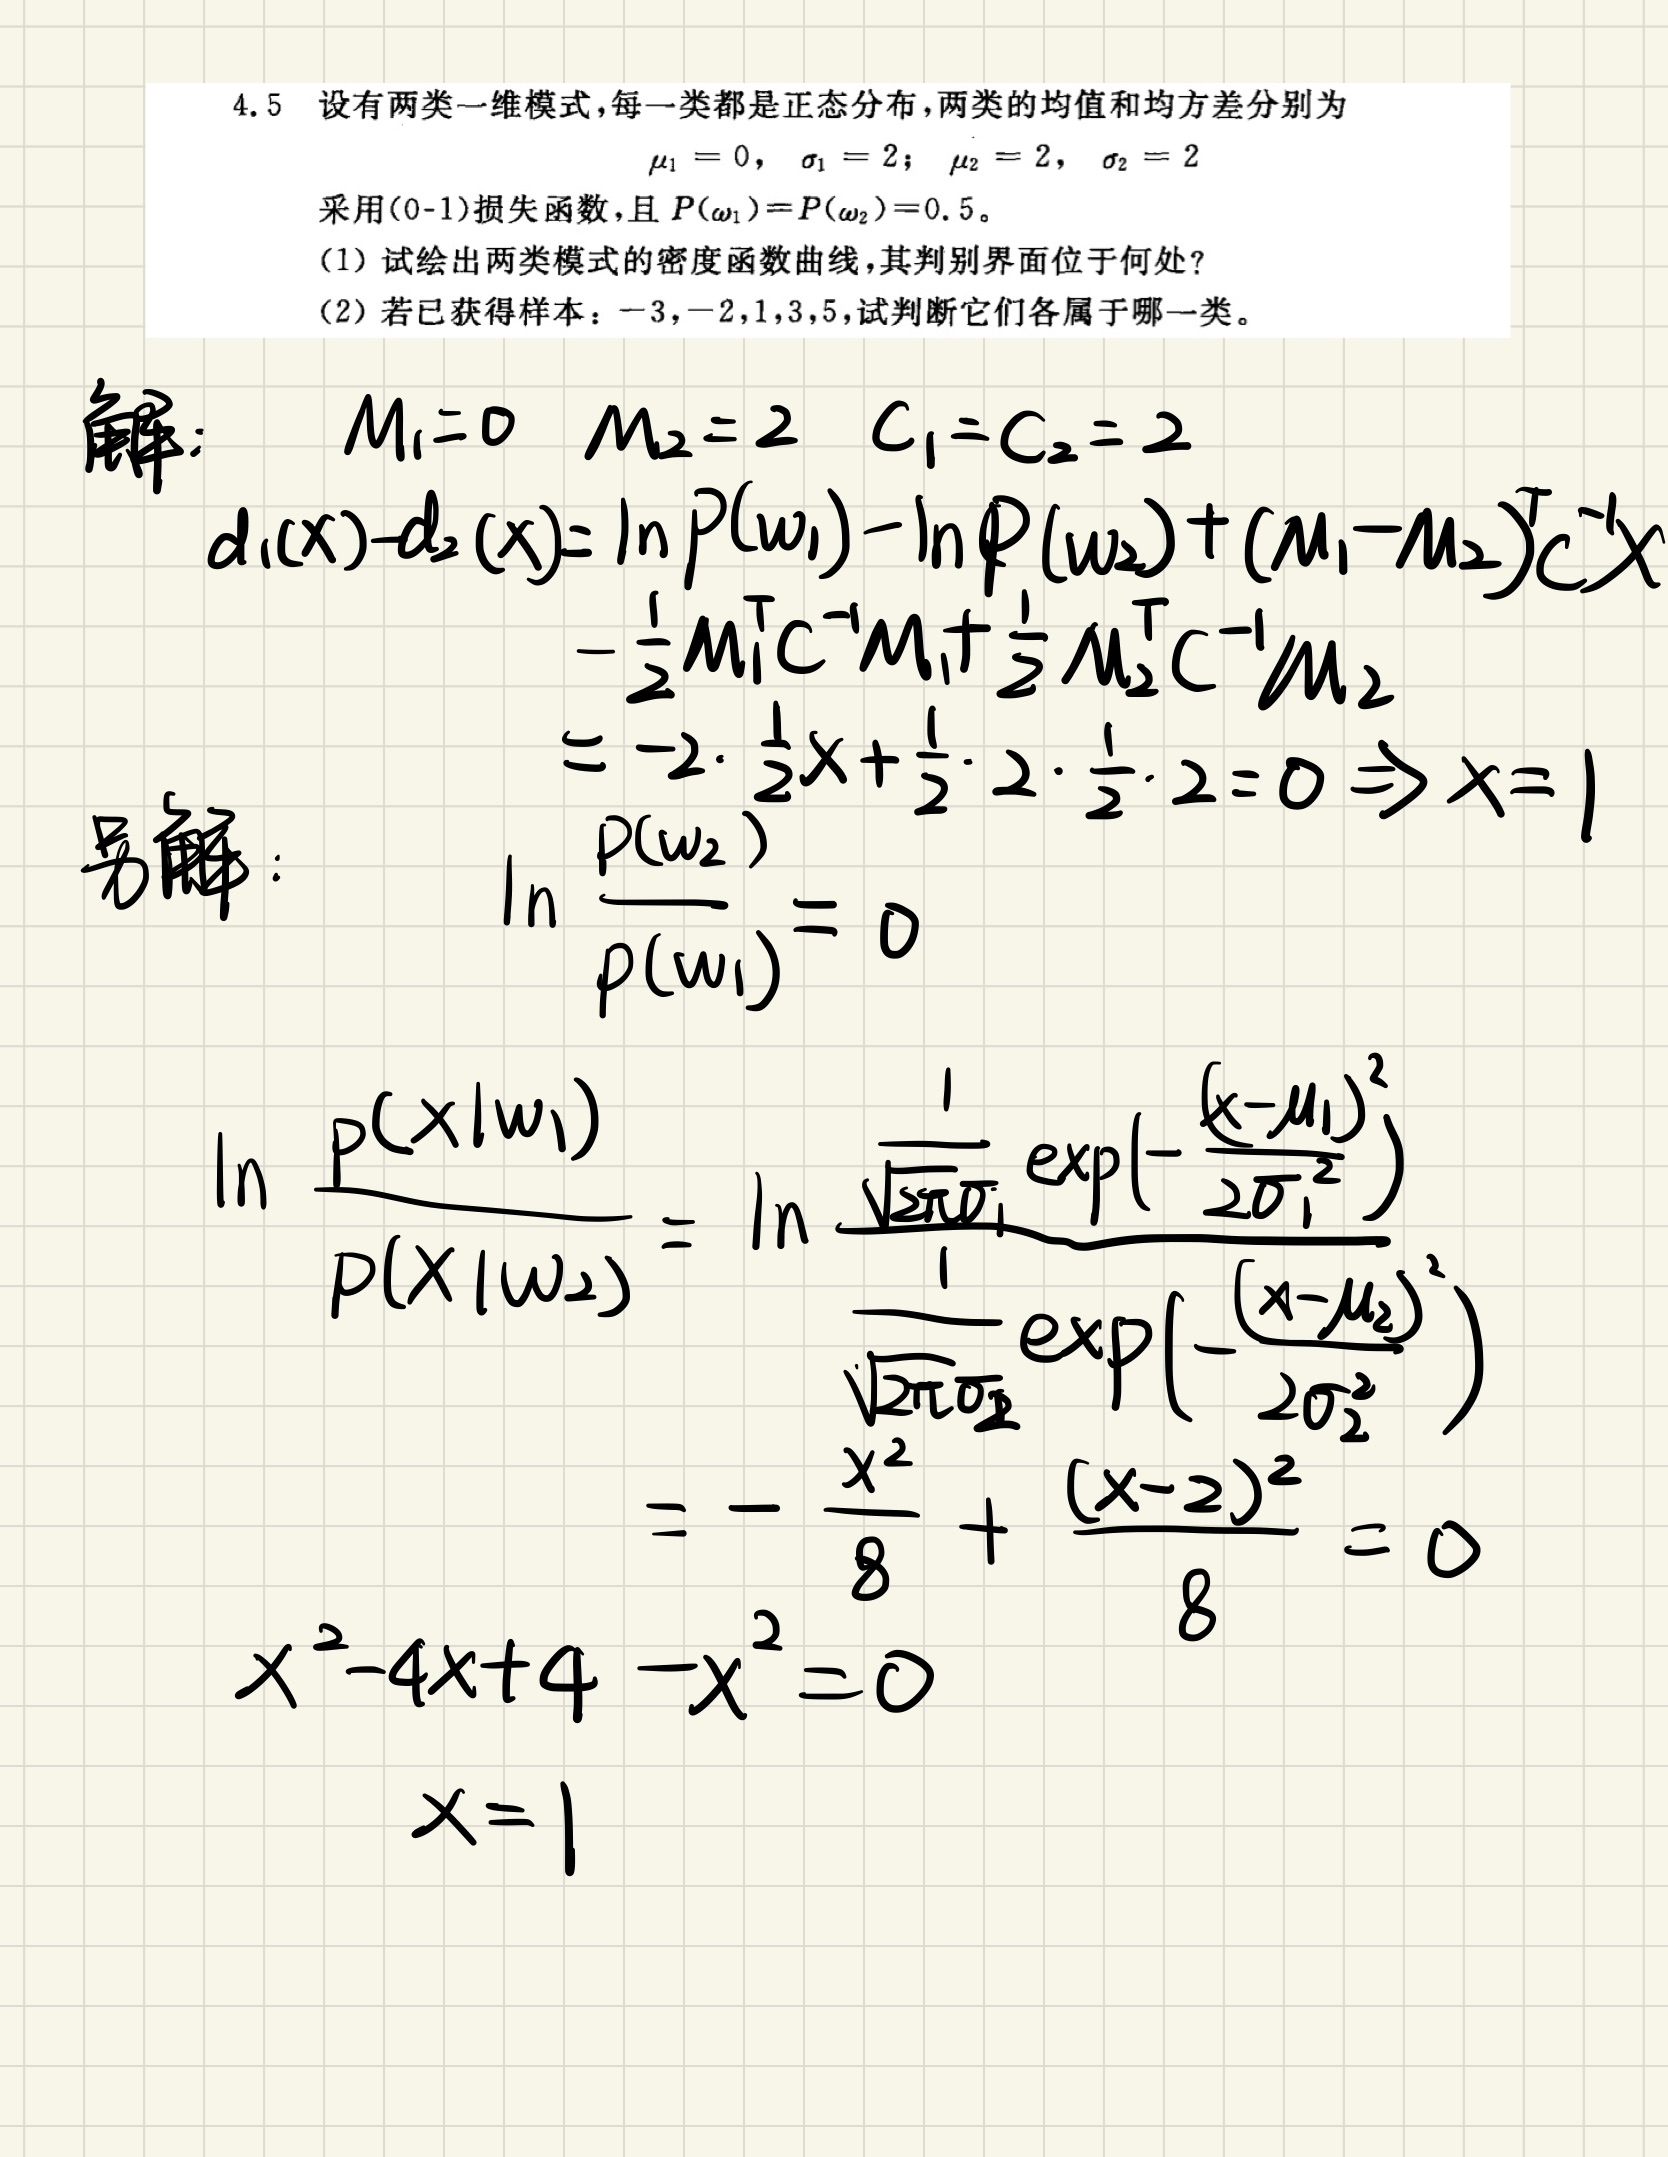 4.5 设有两类一维模式,每一类都是正态分布,两类的均值和均方差分别为
μ₁ = 0, σ₁ = 2; μ₂ = 2, σ₂ = 2
采用(0-1)损失函数,且 P(ω₁)=P(ω₂)=0.5。
(1) 试绘出两类模式的密度函数曲线,其判别界面位于何处?
(2) 若已获得样本: -3,-2,1,3,5,试判断它们各属于哪一类。
解: M₁=0 M₂=2 C₁=C₂=2
d₁(X)-d₂(X)=ln P(w₁)-ln P(w₂)+(M₁-M₂)ᵀC⁻¹X
-1/2 M₁ᵀC⁻¹M₁+1/2 M₂ᵀC⁻¹M₂
= -2·1/2 X+1/2·2·1/2·2=0 ⇒ X=1
另解: ln P(w₂)/P(w₁) = 0
ln P(X|w₁)/P(X|w₂) = ln (1/√2πσ₁ exp(-(x-μ₁)²/2σ₁²))/(1/√2πσ₂ exp(-(x-μ₂)²/2σ₂²))
= - x²/8 + (x-2)²/8 = 0
x²-4x+4-x²=0
x=1